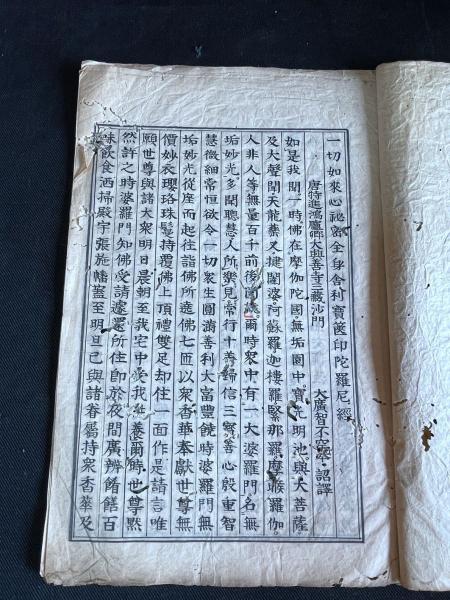 一切如來心祕密全身舍利寶篋印陀羅尼經
唐特進鴻臚卿大興善寺三藏沙門
大廣智不空奉 詔譯
如是我聞一時佛在摩伽陀國無垢園中寶光明池與大菩薩
及大聲聞天龍藥叉揵闥婆阿蘇羅迦樓羅緊那羅摩睺羅伽
人非人等無量百千前後圍繞爾時眾中有一大婆羅門名無
垢妙光多聞聰慧人所樂見常行十善歸信三寶善心殷重智
慧微細常恒欲令一切眾生圓滿善利大富豐饒時婆羅門無
垢妙光從座而起往詣佛所遶佛七匝以眾香華奉獻世尊無
價妙衣瓔珞珠鬘持覆佛上頂禮雙足却住一面作是請言唯
願世尊與諸大眾明日晨朝至我宅中受我供養爾時世尊默
然許之時婆羅門知佛受請遽還所住即於夜間廣辦餚饍百
味飲食洒掃殿宇張施幡蓋至明旦已與諸眷屬持眾香華及